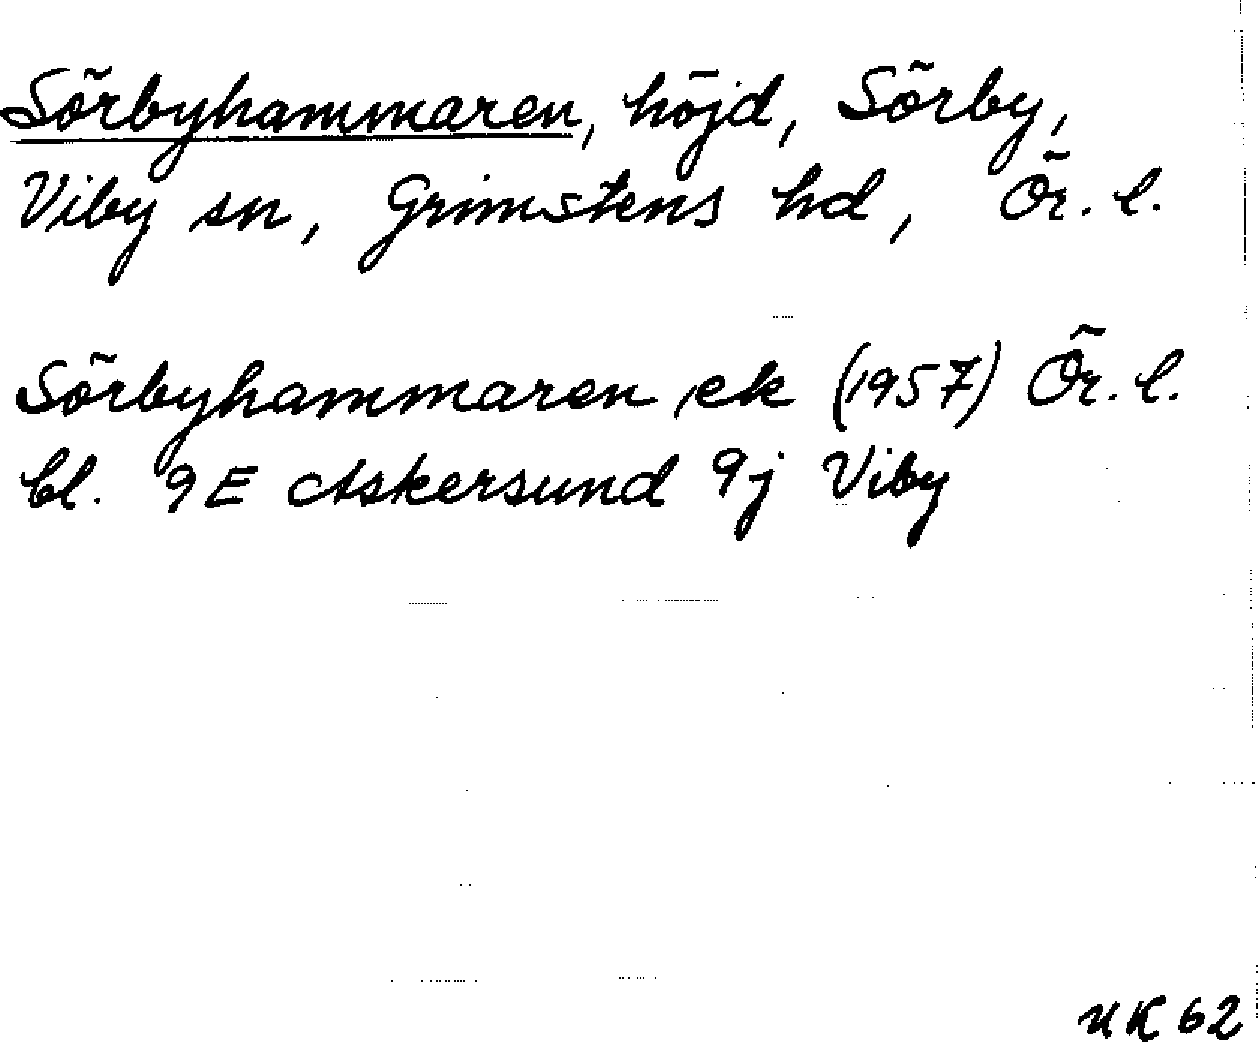 Sörbyhammaren, höjd, Sörby,
Viby sn, Grimstens hd, Ör. l.
Sörbyhammaren ek (1957) Ör. l.
bl. 9E Askersund 9j Viby
HK 62